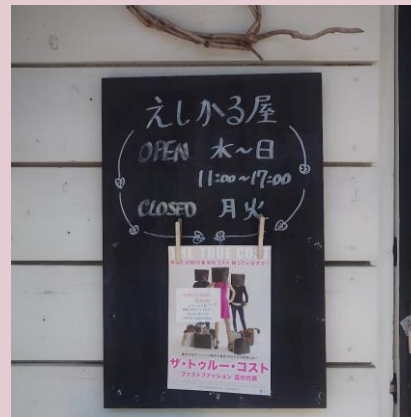 えしかる屋
OPEN 水〜日
11:00〜17:00
CLOSED 月火
THE TRUE COST
ザ・トゥルー・コスト
ファストファッション 真の代償